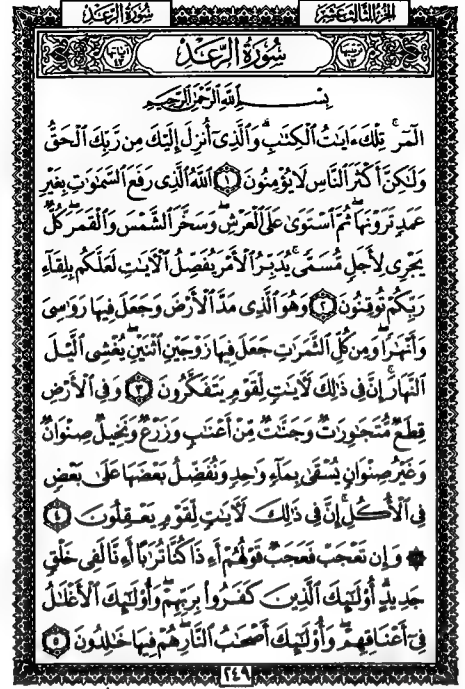 الجزء الثالث عشر سُورَةُ الرَّعْدِ
ترتيبها ١٣ سُورَةُ الرَّعْدِ آياتها ٤٣
بِسْمِ اللَّهِ الرَّحْمَٰنِ الرَّحِيمِ
الٓمٓرۚ تِلْكَ ءَايَٰتُ ٱلْكِتَٰبِۗ وَٱلَّذِىٓ أُنزِلَ إِلَيْكَ مِن رَّبِّكَ ٱلْحَقُّ
وَلَٰكِنَّ أَكْثَرَ ٱلنَّاسِ لَا يُؤْمِنُونَ ١ ٱللَّهُ ٱلَّذِى رَفَعَ ٱلسَّمَٰوَٰتِ بِغَيْرِ
عَمَدٍ تَرَوْنَهَاۖ ثُمَّ ٱسْتَوَىٰ عَلَى ٱلْعَرْشِۖ وَسَخَّرَ ٱلشَّمْسَ وَٱلْقَمَرَۖ كُلٌّ
يَجْرِى لِأَجَلٍ مُّسَمًّىۚ يُدَبِّرُ ٱلْأَمْرَ يُفَصِّلُ ٱلْءَايَٰتِ لَعَلَّكُم بِلِقَآءِ
رَبِّكُمْ تُوقِنُونَ ٢ وَهُوَ ٱلَّذِى مَدَّ ٱلْأَرْضَ وَجَعَلَ فِيهَا رَوَٰسِىَ
وَأَنْهَٰرًاۖ وَمِن كُلِّ ٱلثَّمَرَٰتِ جَعَلَ فِيهَا زَوْجَيْنِ ٱثْنَيْنِۖ يُغْشِى ٱلَّيْلَ
ٱلنَّهَارَۚ إِنَّ فِى ذَٰلِكَ لَءَايَٰتٍ لِّقَوْمٍ يَتَفَكَّرُونَ ٣ وَفِى ٱلْأَرْضِ
قِطَعٌ مُّتَجَٰوِرَٰتٌ وَجَنَّٰتٌ مِّنْ أَعْنَٰبٍ وَزَرْعٌ وَنَخِيلٌ صِنْوَانٌ
وَغَيْرُ صِنْوَانٍ يُسْقَىٰ بِمَآءٍ وَٰحِدٍ وَنُفَضِّلُ بَعْضَهَا عَلَىٰ بَعْضٍ
فِى ٱلْأُكُلِۚ إِنَّ فِى ذَٰلِكَ لَءَايَٰتٍ لِّقَوْمٍ يَعْقِلُونَ ٤
۞ وَإِن تَعْجَبْ فَعَجَبٌ قَوْلُهُمْ أَءِذَا كُنَّا تُرَٰبًا أَءِنَّا لَفِى خَلْقٍ
جَدِيدٍۗ أُو۟لَٰٓئِكَ ٱلَّذِينَ كَفَرُوا۟ بِرَبِّهِمْۖ وَأُو۟لَٰٓئِكَ ٱلْأَغْلَٰلُ
فِىٓ أَعْنَاقِهِمْۖ وَأُو۟لَٰٓئِكَ أَصْحَٰبُ ٱلنَّارِۖ هُمْ فِيهَا خَٰلِدُونَ ٥
٢٤٩